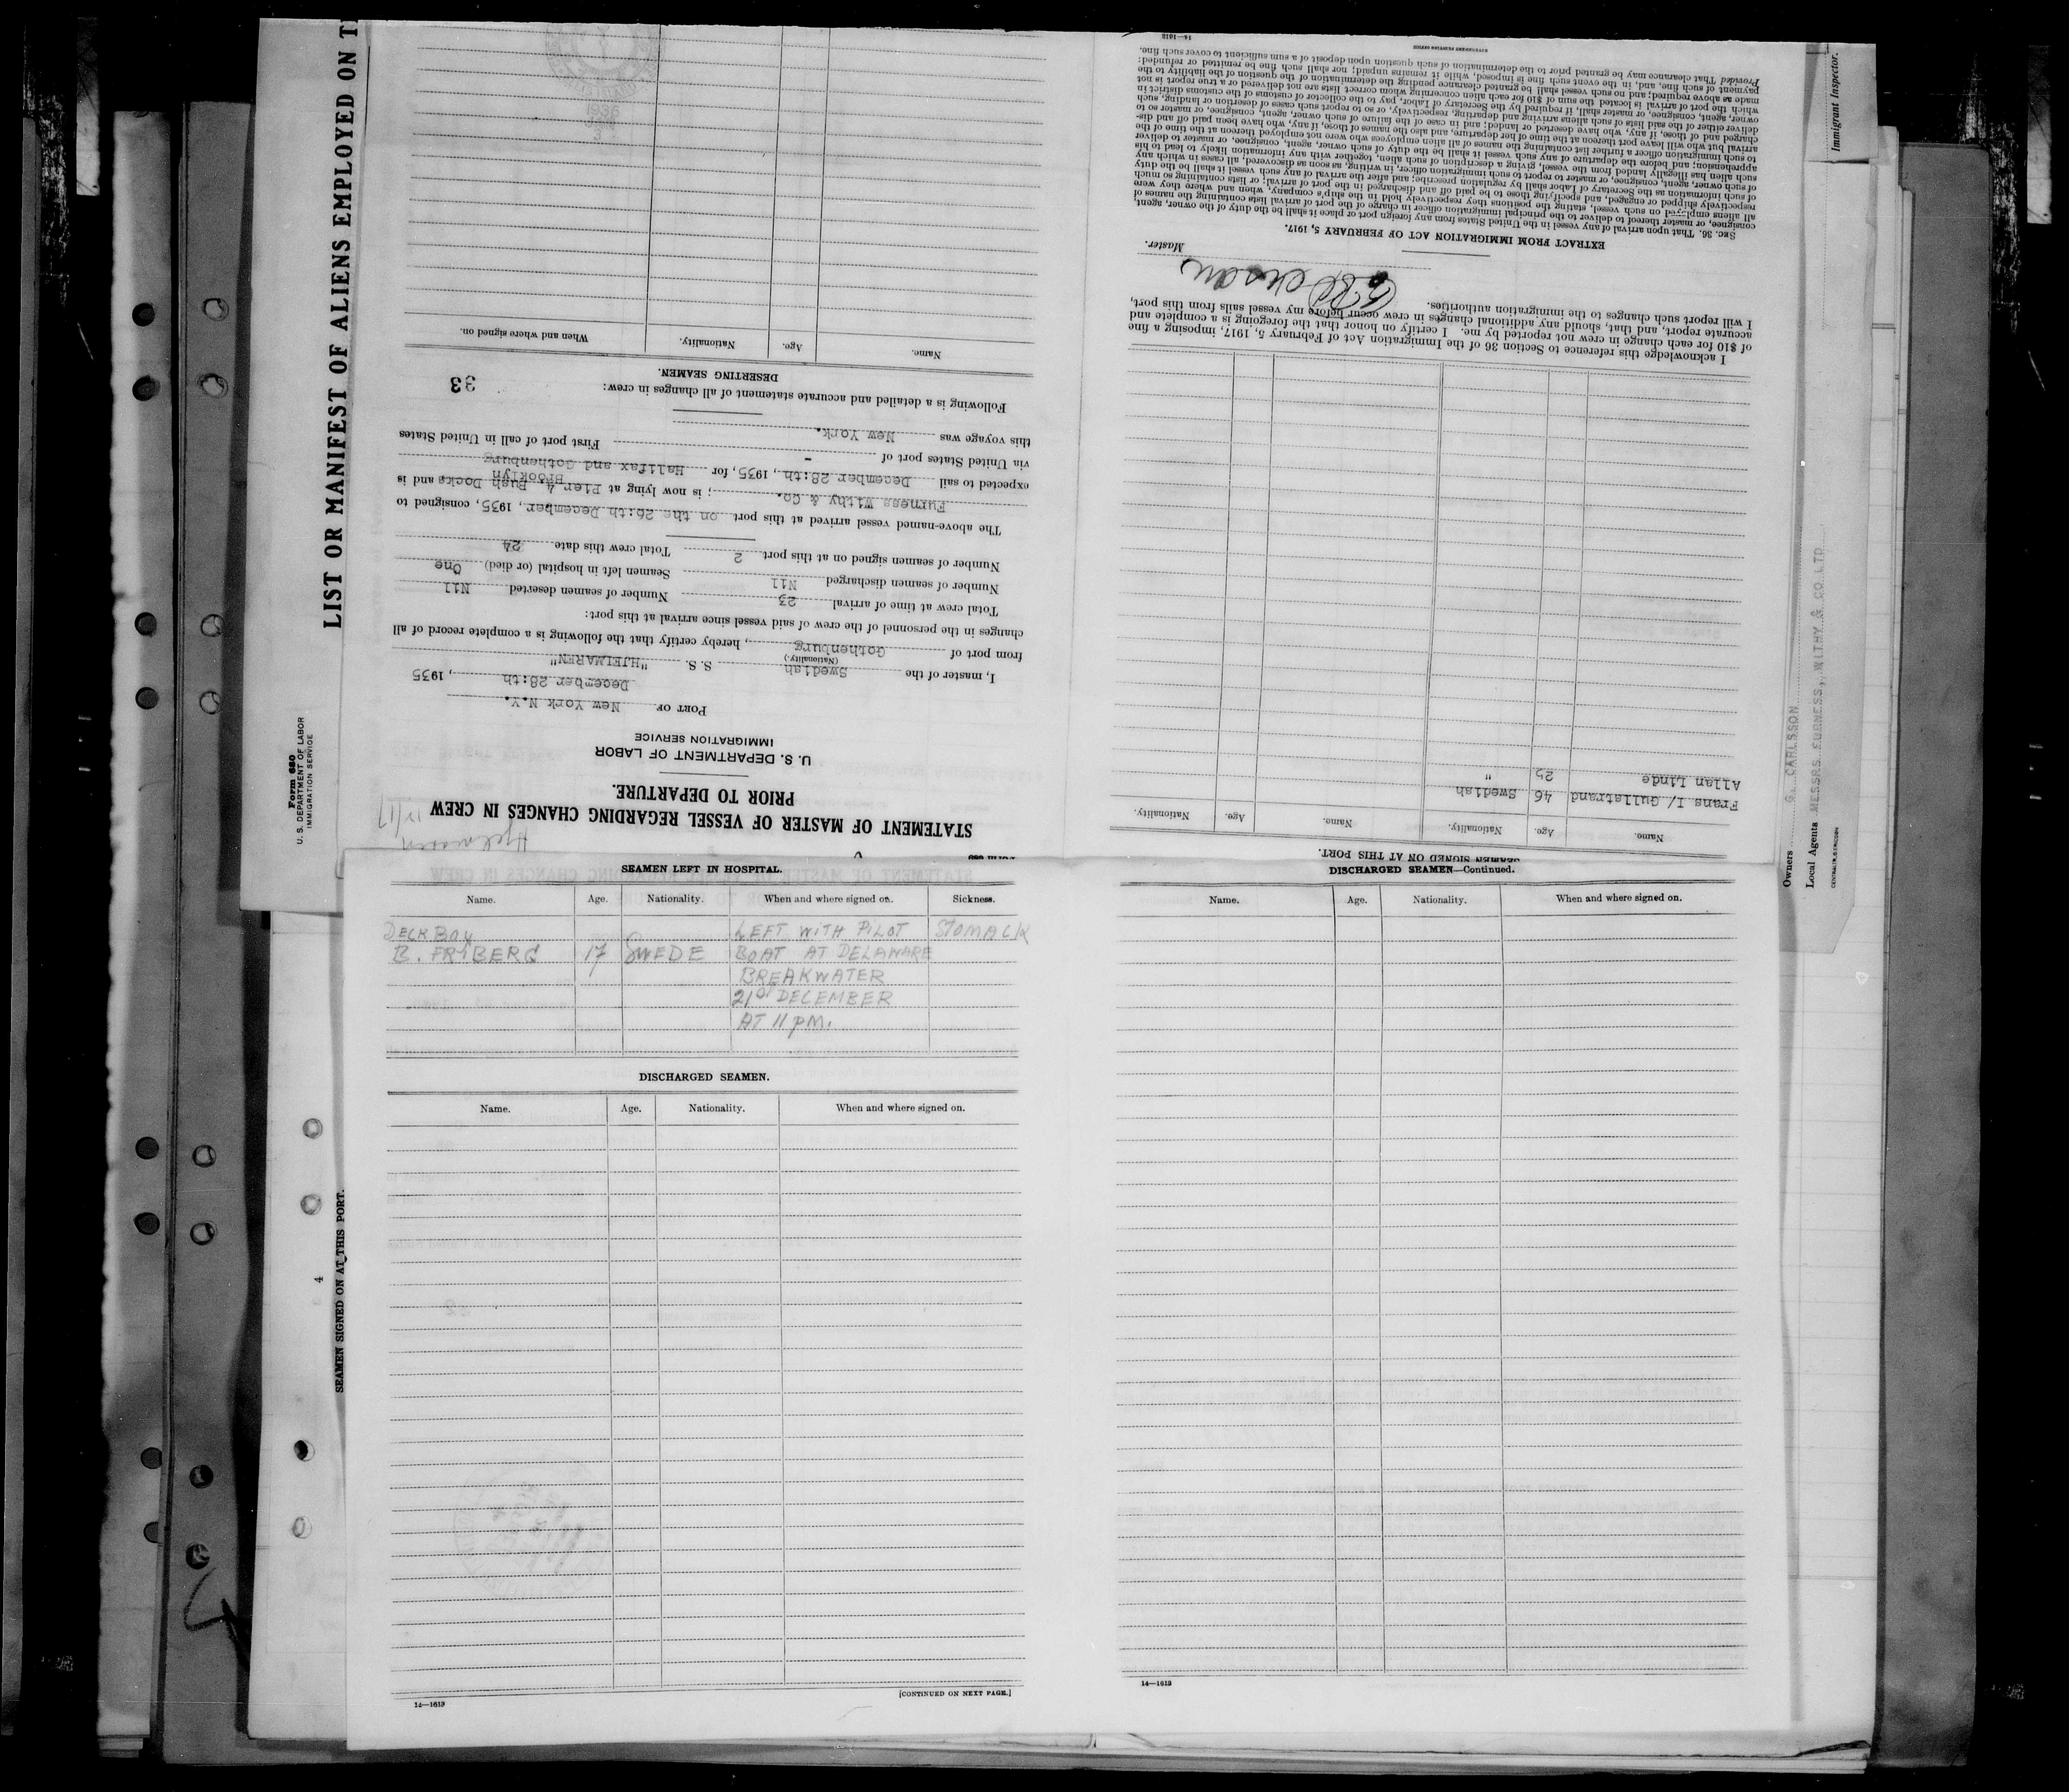 LIST OR MANIFEST OF ALIENS EMPLOYED ON
Form 680
U. S. DEPARTMENT OF LABOR
IMMIGRATION SERVICE
STATEMENT OF MASTER OF VESSEL REGARDING CHANGES IN CREW
PRIOR TO DEPARTURE.
U. S. DEPARTMENT OF LABOR
IMMIGRATION SERVICE
PORT OF New York N.Y.
December 28:th, 1935
I, master of the Swedish S. S. "HJELMAREN"
(Nationality.)
from port of Gothenburg, hereby certify that the following is a complete record of all
changes in the personnel of the crew of said vessel since arrival at this port:
Total crew at time of arrival 23 Number of seamen deserted Nil
Number of seamen discharged Nil Seamen left in hospital (or died) One
Number of seamen signed on at this port 2 Total crew this date 24
The above-named vessel arrived at this port on the 26:th December, 1935, consigned to
Furness Withy & Co.; is now lying at Pier 4, Bush Docks and is
Brooklyn
expected to sail December 28:th, 1935, for Halifax and Gothenburg
via United States port of - First port of call in United States
this voyage was New York.
Following is a detailed and accurate statement of all changes in crew:
33
DESERTING SEAMEN.
Name. Age. Nationality. When and where signed on.
1936
SEAMEN SIGNED ON AT THIS PORT.
Name. Age. Nationality. Name. Age. Nationality.
Frans I/ Gullstrand 46 Swedish
Allan Linde 25 "
I acknowledge this reference to Section 36 of the Immigration Act of February 5, 1917, imposing a fine
of $10 for each change in crew not reported by me. I certify on honor that the foregoing is a complete and
accurate report, and that, should any additional changes in crew occur before my vessel sails from this port,
I will report such changes to the immigration authorities.
Master.
EXTRACT FROM IMMIGRATION ACT OF FEBRUARY 5, 1917.
SEC. 36. That upon arrival of any vessel in the United States from any foreign port or place it shall be the duty of the owner, agent,
consignee, or master thereof to deliver to the principal immigration officer in charge of the port of arrival lists containing the names of
all aliens employed on such vessel, stating the positions they respectively hold in the ship's company, when and where they were
respectively shipped or engaged, and specifying those to be paid off and discharged in the port of arrival; or lists containing so much
of such information as the Secretary of Labor shall by regulation prescribe; and after the arrival of any such vessel it shall be the duty
of such owner, agent, consignee, or master to report to such immigration officer, in writing, as soon as discovered, all cases in which any
such alien has illegally landed from the vessel, giving a description of such alien, together with any information likely to lead to his
apprehension; and before the departure of any such vessel it shall be the duty of such owner, agent, consignee, or master to deliver
to such immigration officer a further list containing the names of all alien employees who were not employed thereon at the time of the
arrival but who will leave port thereon at the time of her departure, and also the names of those, if any, who have been paid off and dis-
charged and of those, if any, who have deserted or landed; and in case of the failure of such owner, agent, consignee, or master so to
deliver either of the said lists of such aliens arriving and departing, respectively, or so to report such cases of desertion or landing, such
owner, agent, consignee, or master shall, if required by the Secretary of Labor, pay to the collector of customs of the customs district in
which the port of arrival is located the sum of $10 for each alien concerning whom correct lists are not delivered or a true report is not
made as above required; and no such vessel shall be granted clearance pending the determination of the question of the liability to the
payment of such fine, and, in the event such fine is imposed, while it remains unpaid; nor shall such fine be remitted or refunded:
Provided That clearance may be granted prior to the determination of such question upon deposit of a sum sufficient to cover such fine.
14—1613
GOVERNMENT PRINTING OFFICE
Immigrant Inspector.
Owners G. CARLSSON
Local Agents MESSRS. FURNESS, WITHY & CO LTD
SEAMEN LEFT IN HOSPITAL.
Name. Age. Nationality. When and where signed on. Sickness.
DECK BOY LEFT WITH PILOT STOMACK
B. FRYBERG 17 SWEDE BOAT AT DELAWARE
BREAKWATER
21st DECEMBER
AT 11 PM.
DISCHARGED SEAMEN.
Name. Age. Nationality. When and where signed on.
14—1613
[CONTINUED ON NEXT PAGE.]
DISCHARGED SEAMEN—Continued.
Name. Age. Nationality. When and where signed on.
14—1613
SEAMEN SIGNED ON AT THIS PORT.
4